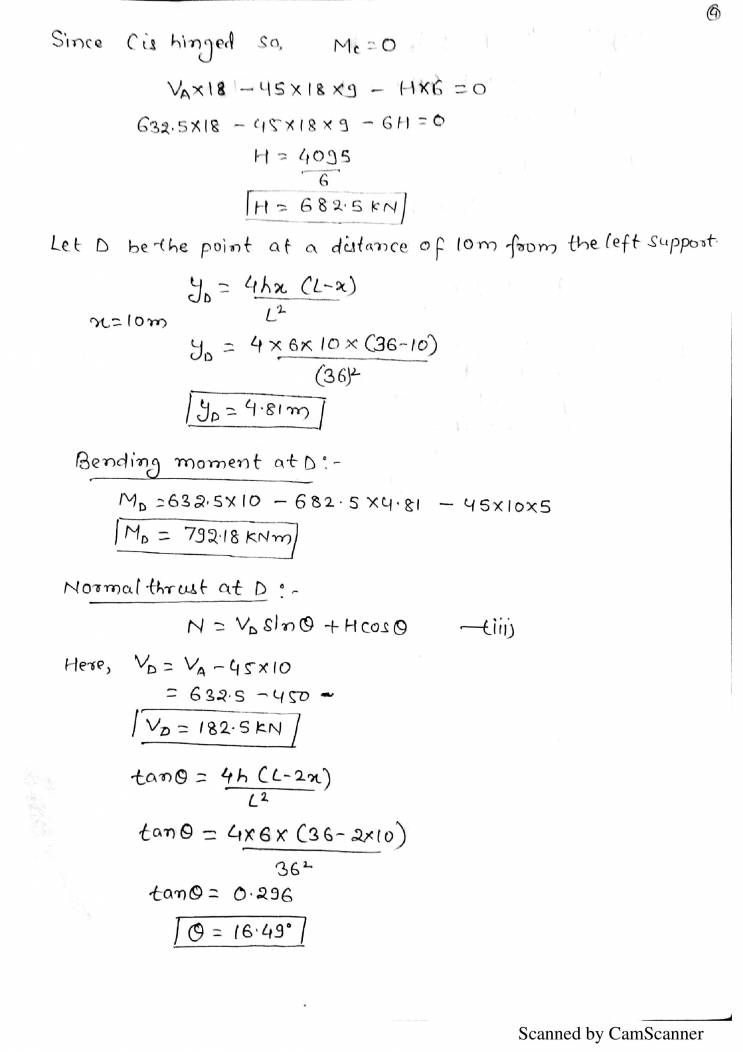 ④
Since C is hinged so, Mc = 0
VA×18 - 45×18×9 - H×6 = 0
632.5×18 - 45×18×9 - 6H = 0
H = 4095
6
H = 682.5 KN
Let D be the point at a distance of 10m from the left support.
yD = 4hx (L-x)
L²
x=10m
yD = 4×6×10×(36-10)
(36)²
yD = 4.81m
Bending moment at D:-
MD = 632.5×10 - 682.5×4.81 - 45×10×5
MD = 792.18 KNm
Normal thrust at D:-
N = VD sinθ + H cosθ —(iii)
Here, VD = VA - 45×10
= 632.5 - 450 -
VD = 182.5KN
tanθ = 4h (L-2x)
L²
tanθ = 4×6×(36-2×10)
36²
tanθ = 0.296
θ = 16.49°
Scanned by CamScanner